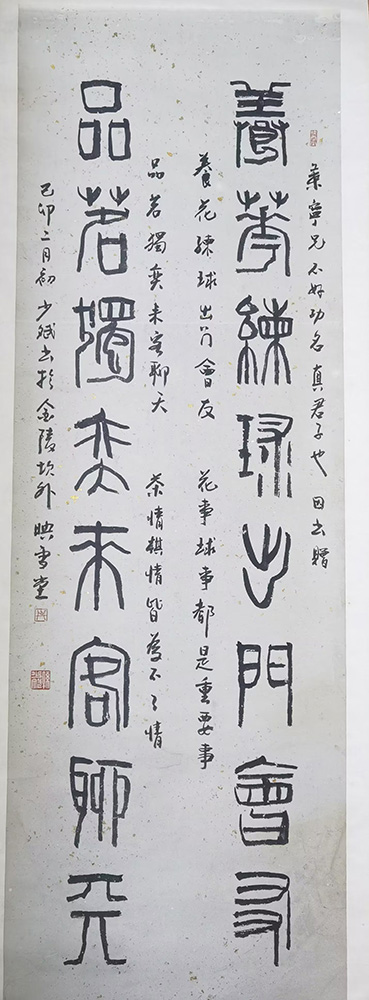 葉寧兄不好功名真君子也 因書贈
養華練球出門會友
養花練球出門會友 花事球事都是重要事
品茗獨弈來客聊天 茶情棋情皆為不了情
品茗獨弈來客聊天
己卯二月初少斌書於金陵城外映雪堂